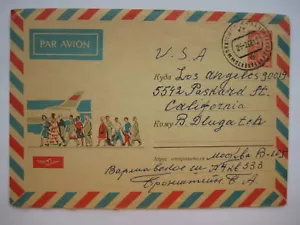 PAR AVION
U S A
Куда Los Angeles 90019
5542 Packard St.
California
Кому B Dlugatch
Адрес отправителя Москва
Варшавское ш.
Бронштейн